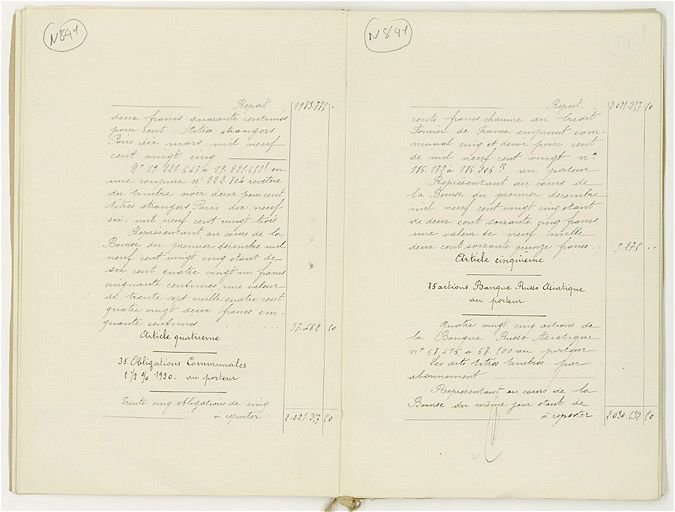 N 841
Report
1.983.775 ..
deux francs quarante centimes
pour cent. titres étrangers
Paris dix mars mil neuf
cent vingt cinq
en
une coupure n° 222.814 revêtue
du timbre noir deux pour cent
titres étrangers Paris dix neuf
six mil neuf cent vingt trois
Représentant au cours de la
Bourse du premier décembre mil
neuf cent vingt cinq étant de
six cent quatre vingt un francs
cinquante centimes, une valeur
de trente sept mille quatre cent
quatre vingt deux francs cin-
quante centimes
37.482 50
Article quatrieme
35 Obligations Communales
1920. au porteur
Trente cinq obligations de cinq
à reporter
2.021.257 50
N 841
Report
2.021.257 50
cents francs chacune du Crédit
Foncier de France emprunt com-
munal cinq et demi pour cent
de mil neuf cent vingt n°
au porteur
Représentant au cours de
la Bourse du premier décembre
mil neuf cent vingt cinq étant
de deux cent soixante cinq francs
une valeur de neuf mille
deux cent soixante quinze francs
9.275 ..
Article cinquième
85 actions Banque Russo Asiatique
au porteur
Quatre vingt cinq actions de
la Banque Russo Asiatique
au porteur
Les dits titres timbrés par
abonnement
Représentant au cours de la
Bourse du même jour étant de
à reporter
2.030.532 50